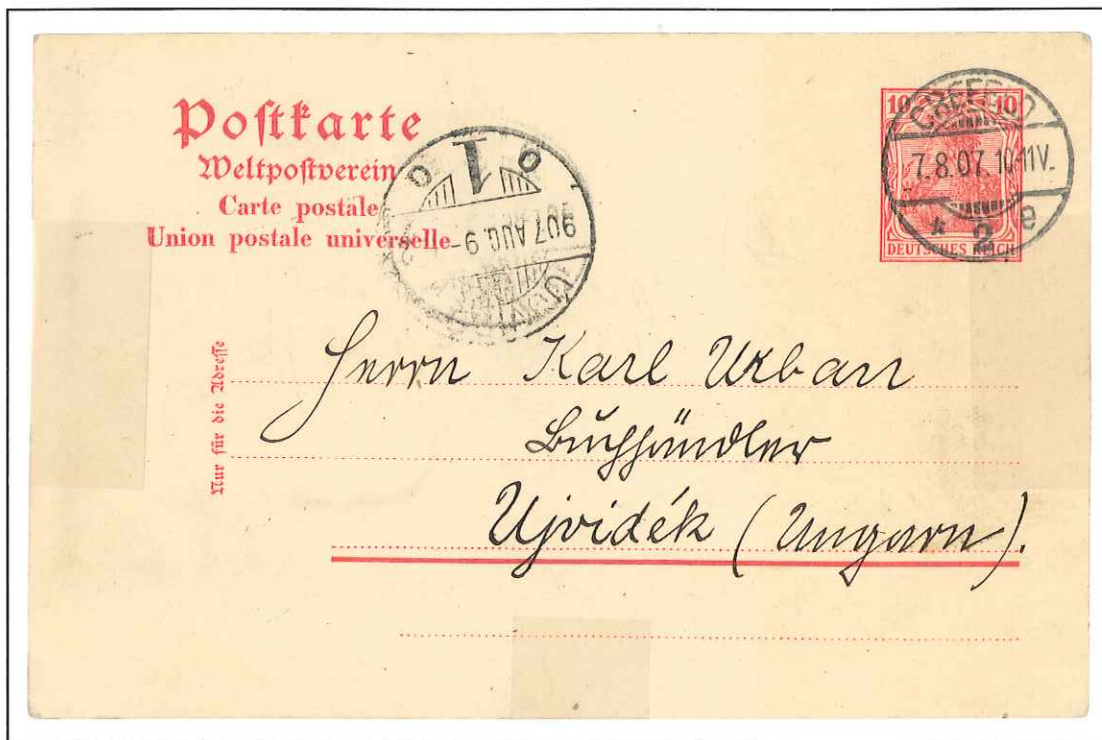 Postkarte
Weltpostverein
Carte postale
Union postale universelle
10 10
DEUTSCHES REICH
CREFELD
7.8.07. 10-11V.
* 2 e
1
907 AUG. 9
Nur für die Adresse
Herrn Karl Urban
Buchhändler
Ujvidék (Ungarn).